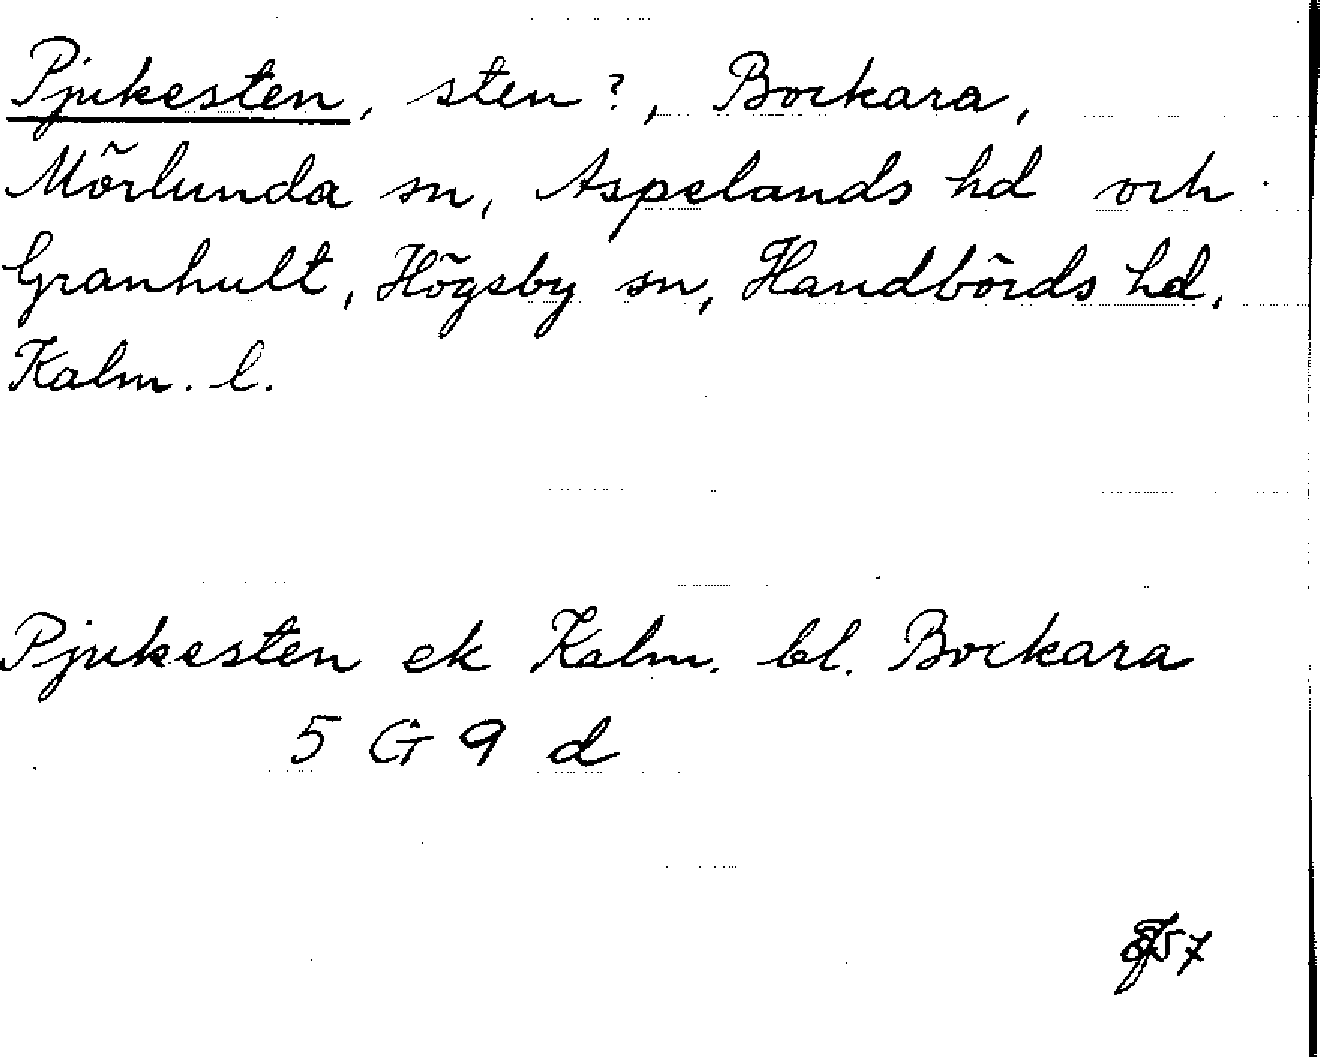 Pjukesten, sten?, Bockara,
Mörlunda sn, Aspelands hd och
Granhult, Högsby sn, Handbörds hd,
Kalm. l.
Pjukesten ek Kalm. bl. Bockara
5 G 9 d